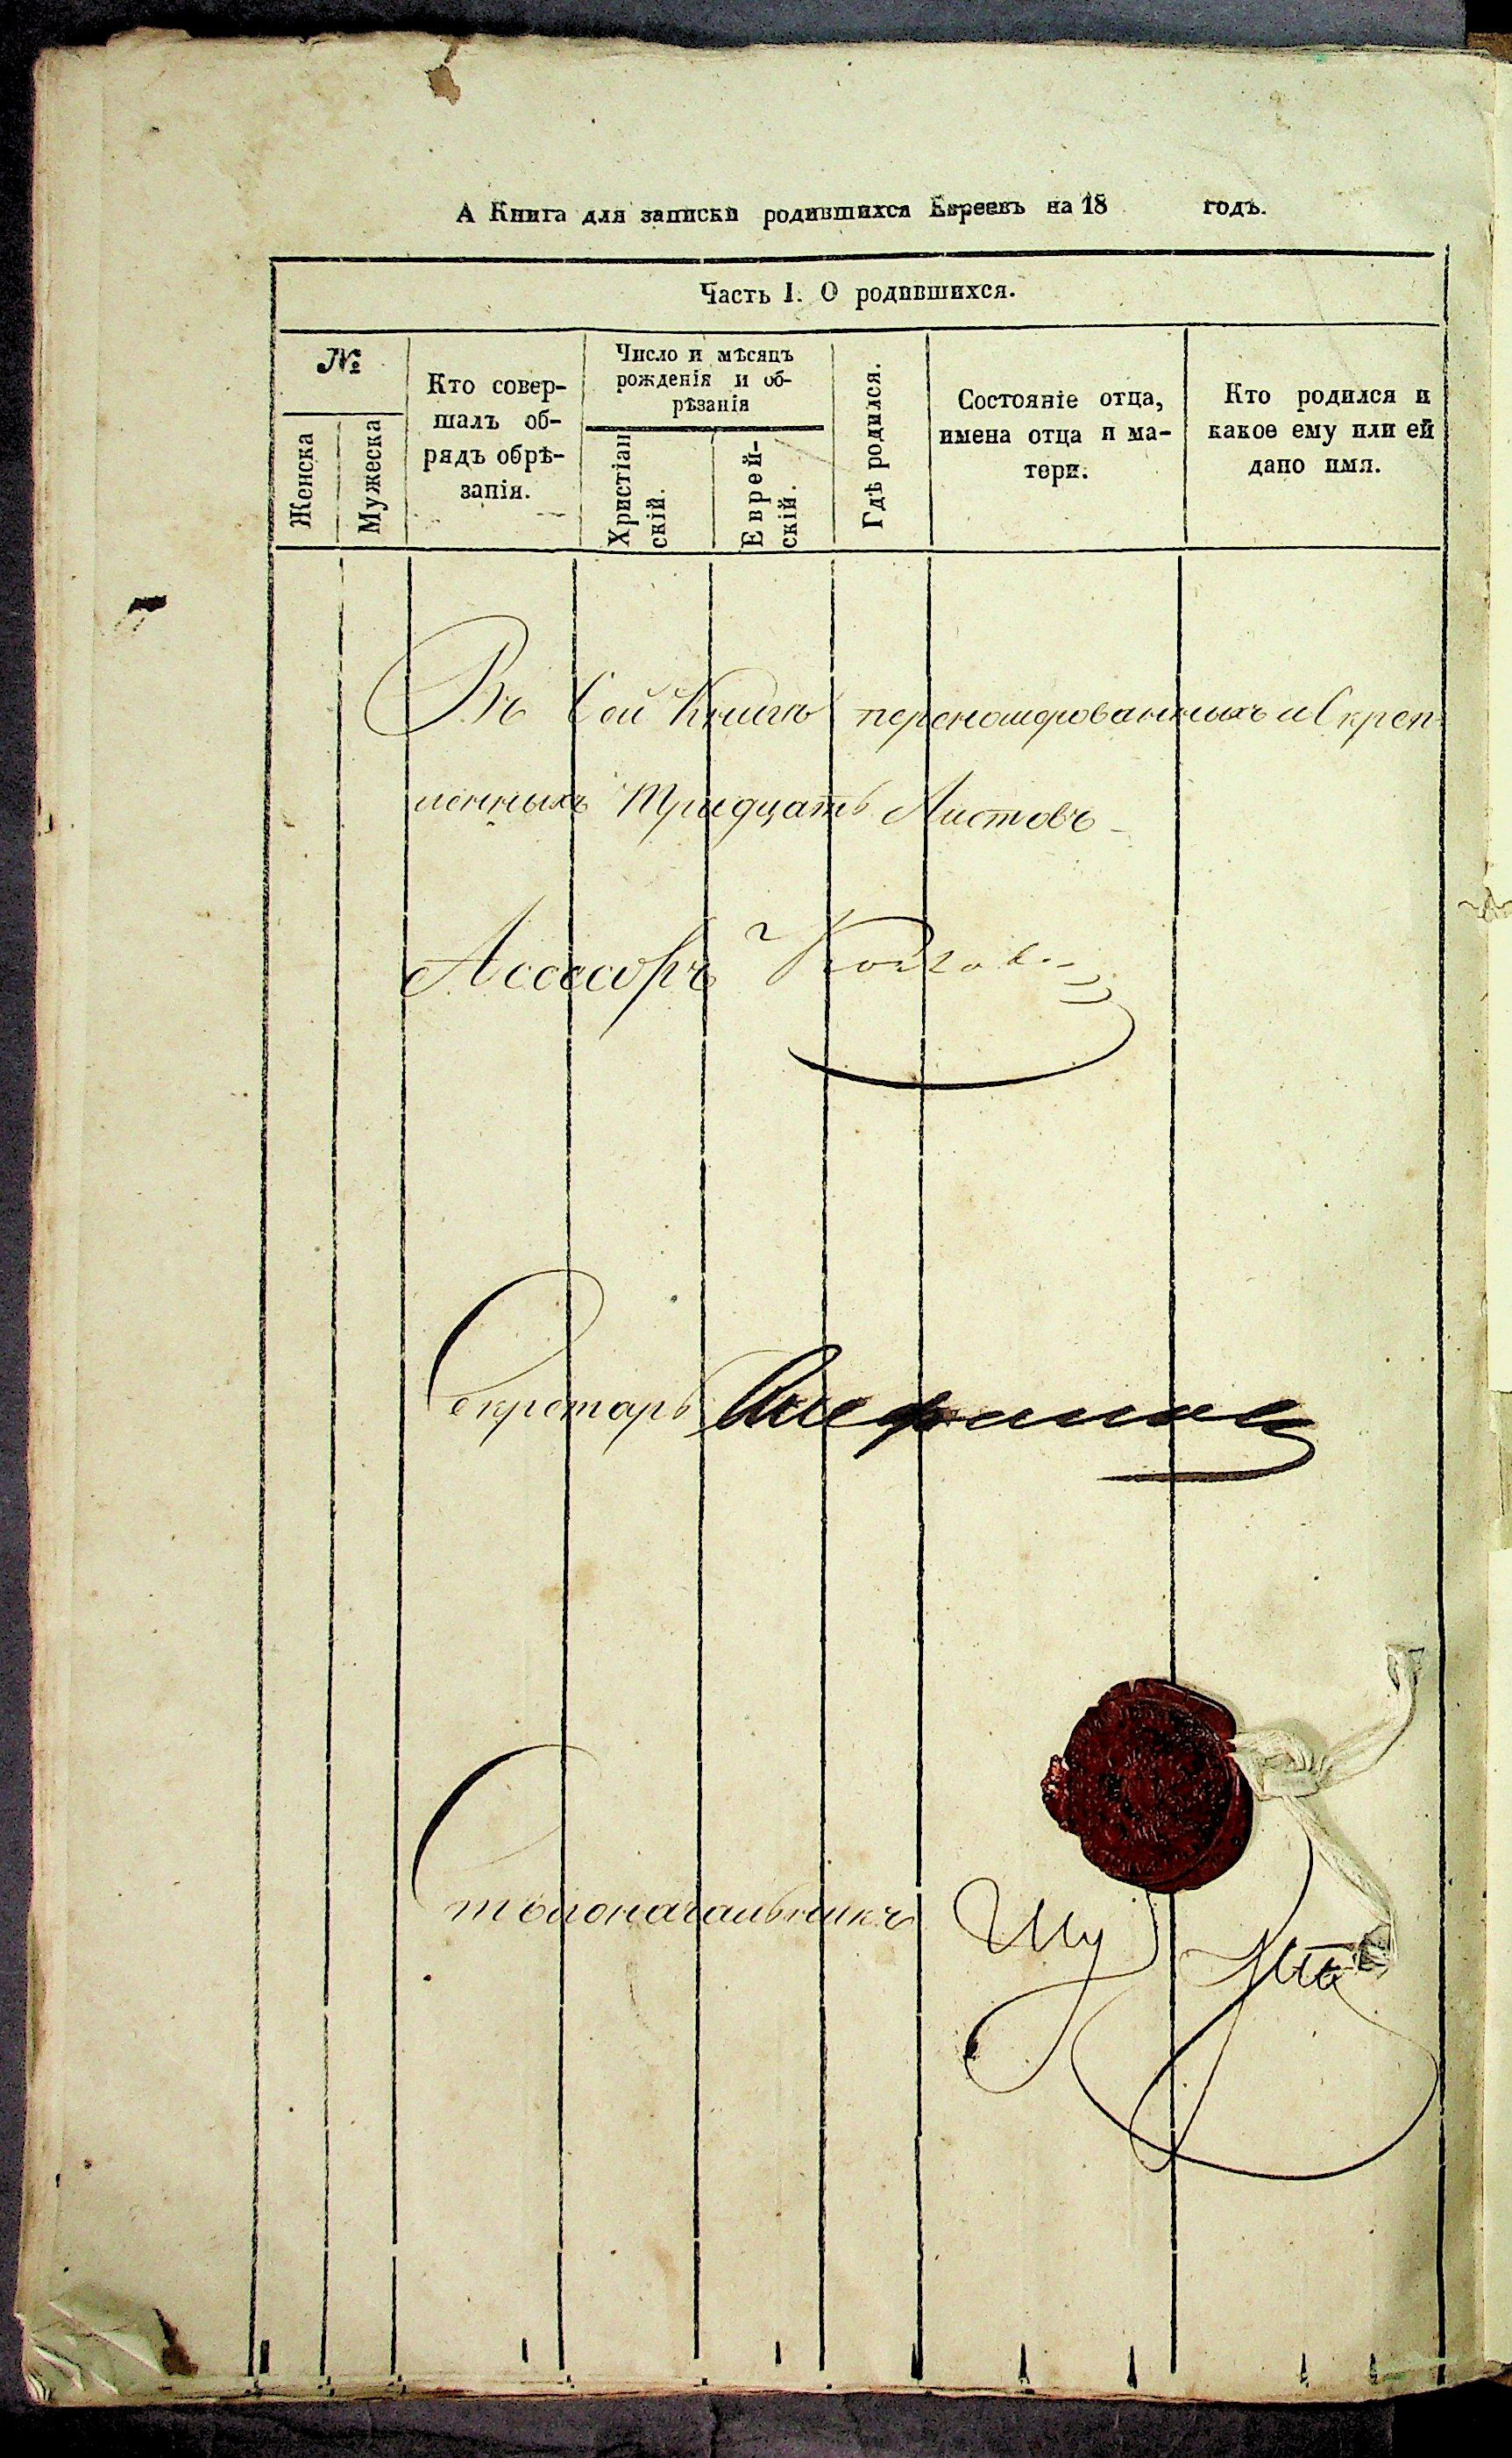 А Книга для записки родившихся Евреевъ на 18 годъ.
Часть I. О родившихся.
№
Женска
Мужеска
Кто совер-
шалъ об-
рядъ обрѣ-
занія.
Число и мѣсяцъ
рожденія и об-
рѣзанія
Христіан
скій.
Еврей-
скій.
Гдѣ родился.
Состояніе отца,
имена отца и ма-
тери.
Кто родился и
какое ему или ей
дано имя.
Въ Сей Книгѣ переномерованныхъ и Скреп-
ленныхъ Тридцать Листовъ
Асесоръ
Секретарь
Столоначальникъ